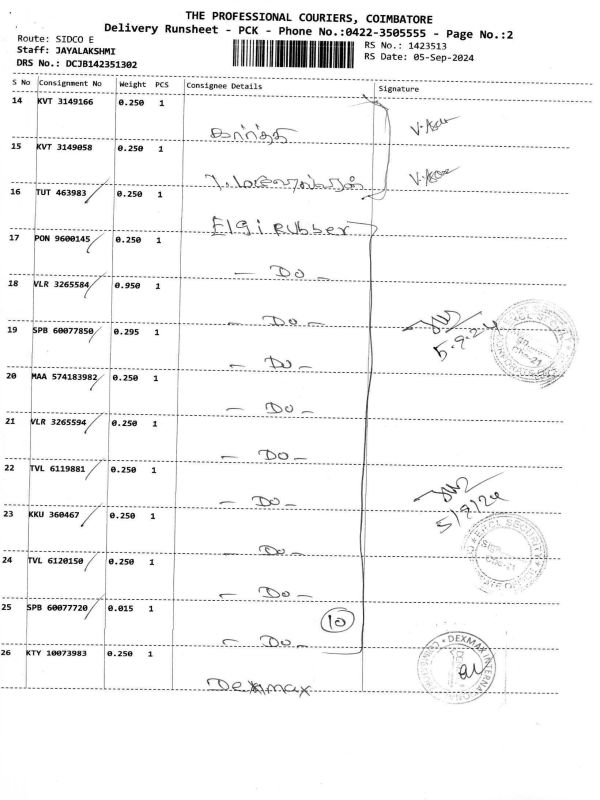 THE PROFESSIONAL COURIERS, COIMBATORE
Delivery Runsheet - PCK - Phone No.:0422-3505555 - Page No.:2
Route: SIDCO E
RS No.: 1423513
Staff: JAYALAKSHMI
RS Date: 05-Sep-2024
DRS No.: DCJB142351302
S No Consignment No Weight PCS Consignee Details Signature
14 KVT 3149166 0.250 1
கார்த்தி
15 KVT 3149058 0.250 1
16 TUT 463983 0.250 1
Elgi Rubber
17 PON 9600145 0.250 1
- Do -
18 VLR 3265584 0.950 1
- Do -
19 SPB 60077850 0.295 1
5.9.24
- Do -
20 MAA 574183982 0.250 1
- Do -
21 VLR 3265594 0.250 1
- Do -
22 TVL 6119881 0.250 1
- Do -
5/9/24
23 KKU 360467 0.250 1
- Do -
24 TVL 6120150 0.250 1
- Do -
25 SPB 60077720 0.015 1
10
- Do -
26 KTY 10073983 0.250 1
DEXMAX
Dexmax